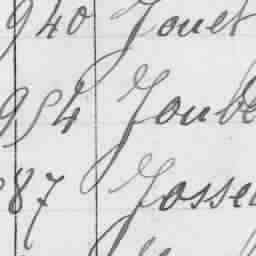 940 Jouet
954 Joube
87 Josse